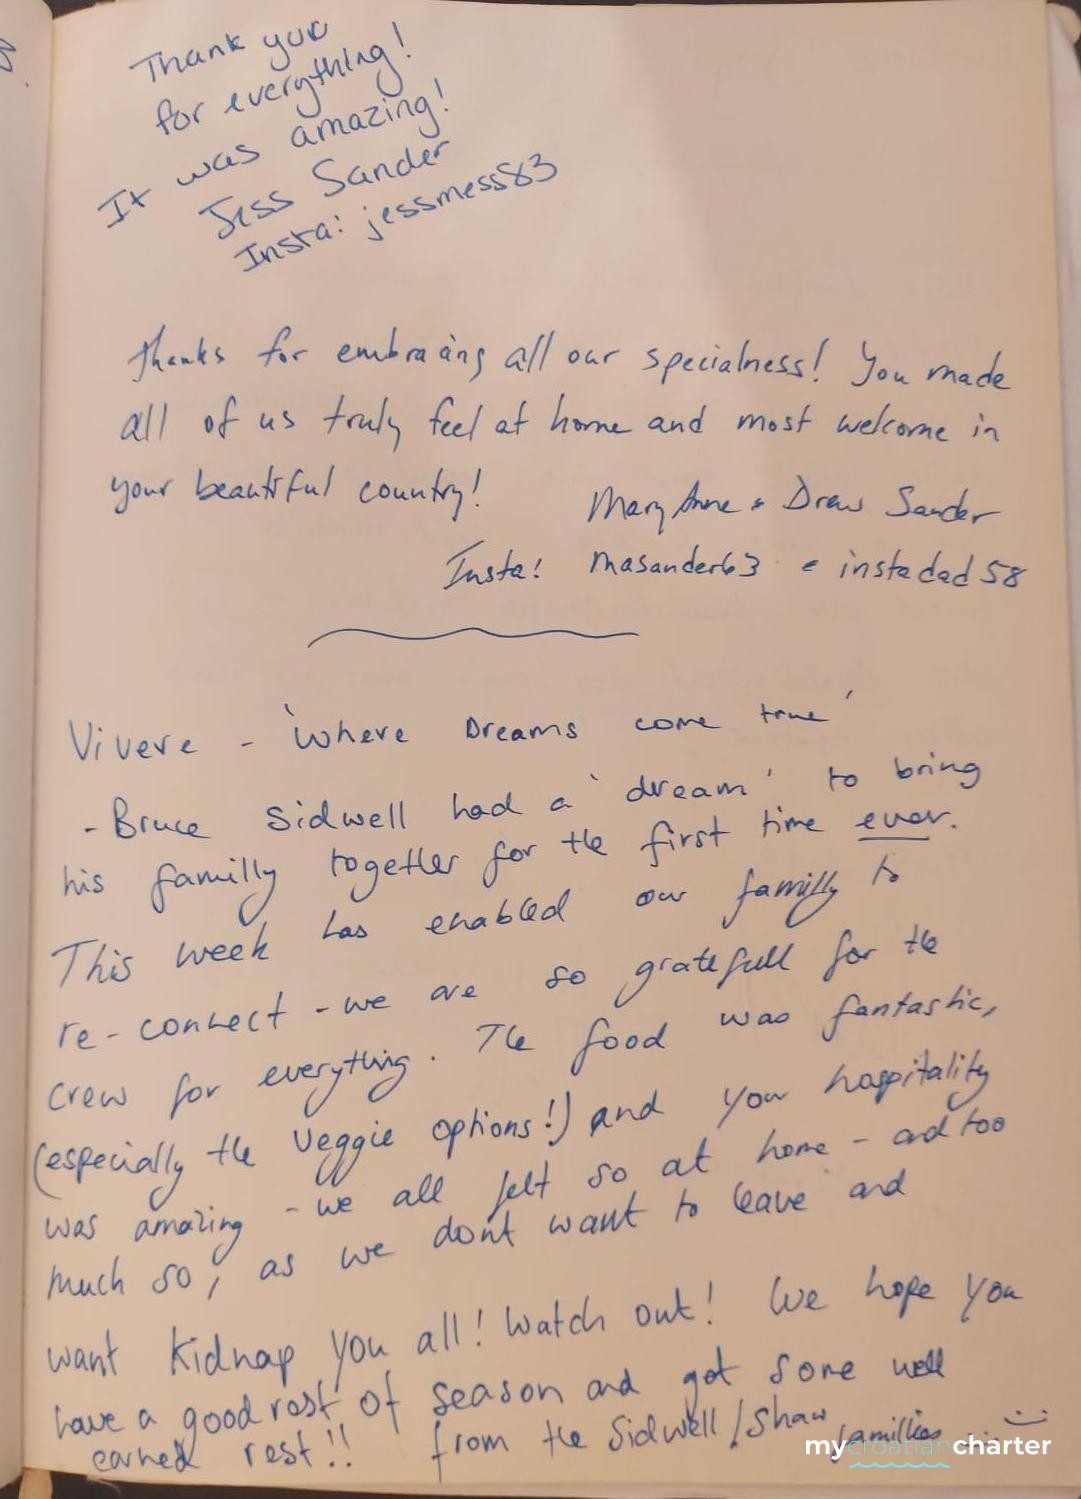 Thank you
for everything!
It was amazing!
Jess Sander
Insta: jessmess83
Thanks for embracing all our specialness! You made
all of us truly feel at home and most welcome in
your beautiful country!
Mary Anne & Drew Sander
Insta! masander63 & instadad58
Vivere - 'Where Dreams come true'
- Bruce Sidwell had a 'dream' to bring
his familly together for the first time ever.
This week has enabled our familly to
re-connect - we are so gratefull for the
crew for everything. The food was fantastic,
(especially the veggie options!) and your hospitality
was amazing - we all felt so at home - and too
much so, as we don't want to leave and
want kidnap you all! Watch out! We hope you
have a good rest of season and get some well
earned rest!! from the Sidwell/Shaw famillies :)
mycroatiancharter